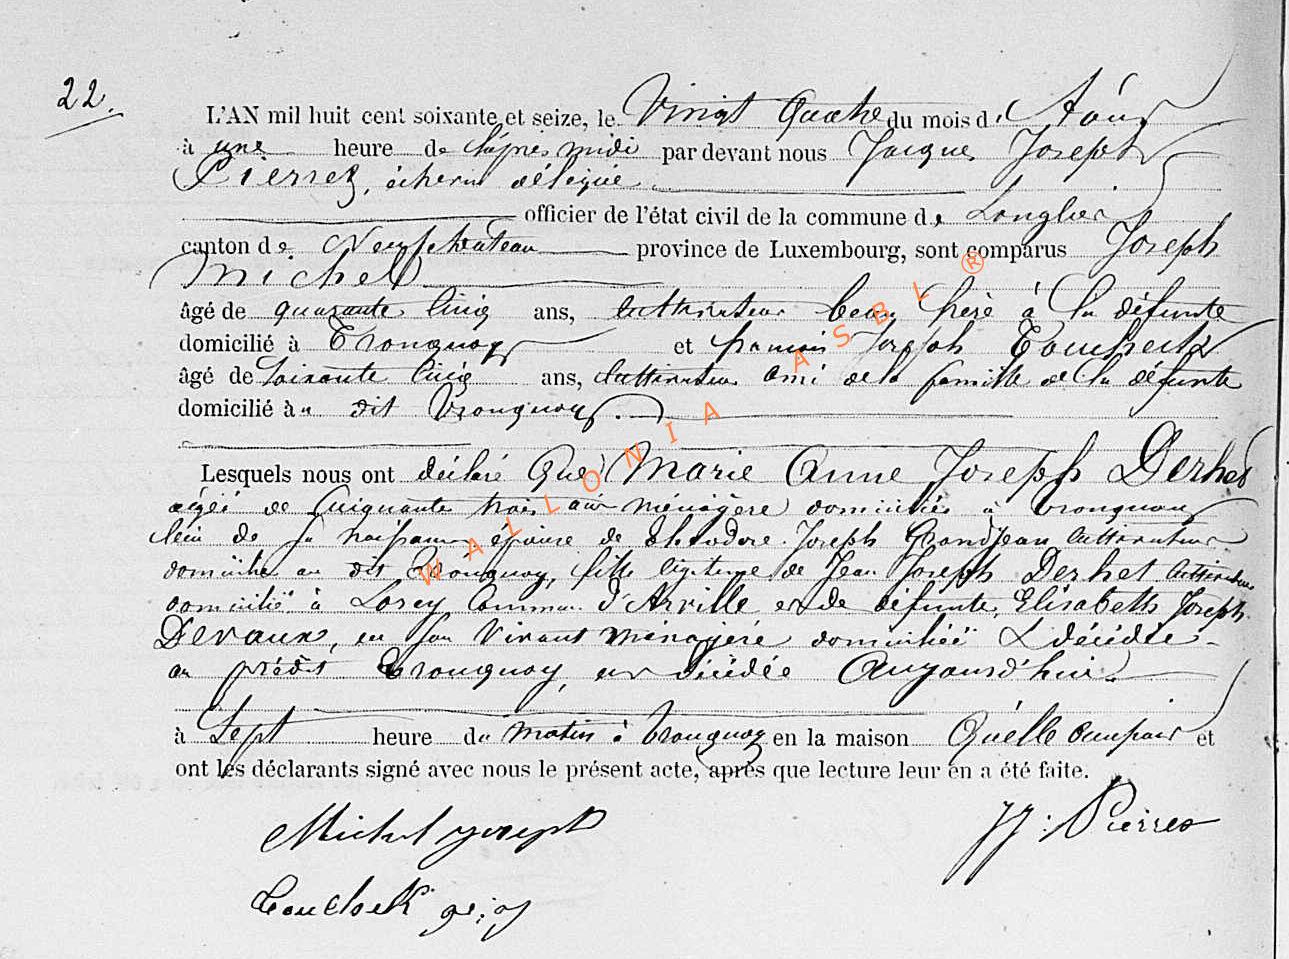 22.
L'AN mil huit cent soixante et seize, le Vingt Quatre du mois d' Août
à une heure de l'après midi par devant nous Jacques Joseph
Pierret, échevin délégué
officier de l'état civil de la commune de Longlier
canton de Neufchateau province de Luxembourg, sont comparus Joseph
Michel
âgé de quarante cinq ans, cultivateur beau frère à la défunte
domicilié à Tronquoy et françois Joseph
âgé de soixante cinq ans, cultivateur ami de la famille de la défunte
domicilié à u dit Tronquoy.
Lesquels nous ont déclaré Que Marie Anne Joseph Derhet
agée de cinquante trois ans ménagère domiciliée à Tronquoy
lieu de sa naissance épouse de Théodore Joseph Grandjean cultivateur
domicilié au dit Tronquoy, fille légitime de Jean Joseph Derhet cultivateur
domicilié à Lorcy Commune d'Arville et de défunte Elisabeth Joseph
Devaux, en son vivant ménagère domiciliée & décédée
au prédit Tronquoy, est décédée Aujourd'hui
à Sept heure du matin à Tronquoy en la maison Qu'elle occupait et
ont les déclarants signé avec nous le présent acte, après que lecture leur en a été faite.
Michel joseph
JJ. Pierret
WALLONIA ASBL ®